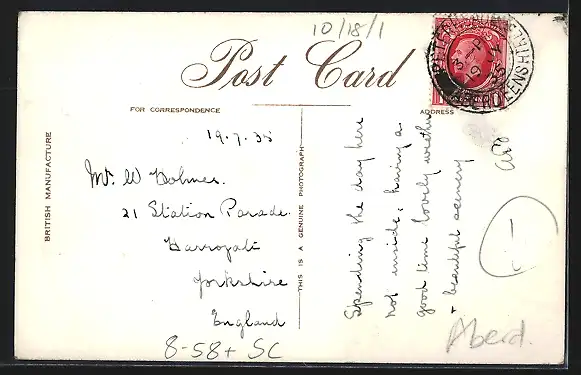 10/18/1
Post Card
FOR CORRESPONDENCE
ADDRESS
BRITISH MANUFACTURE
THIS IS A GENUINE PHOTOGRAPH
19.7.35
Mr W Holmes.
21 Station Parade.
Harrogate
Yorkshire
England
Spending the day here
not inside, having a
good time lovely weather
+ beautiful scenery
8-58+ SC
Aberd.